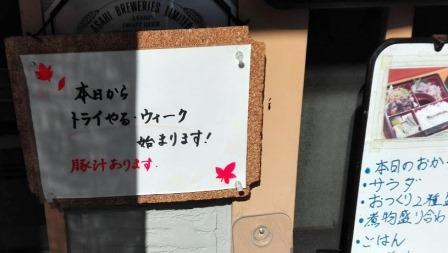 ASAHI BREWERIES LIMITED
本日から
トライやる・ウィーク
始まります!
豚汁あります.
・本日のおか
・サラダ
・おつくり2種
・煮物盛り合わ
・ごはん